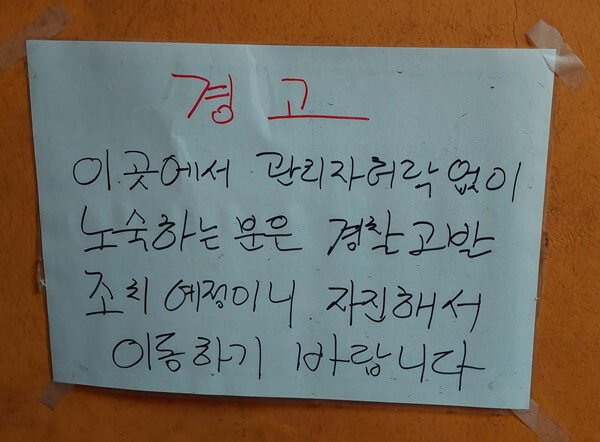 경고
이곳에서 관리자허락없이
노숙하는 분은 경찰고발
조치 예정이니 자진해서
이동하기 바랍니다